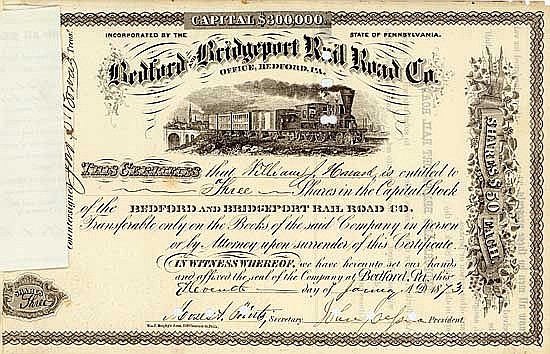 CAPITAL $300,000.
INCORPORATED BY THE STATE OF PENNSYLVANIA.
Bedford and Bridgeport Rail Road Co.
OFFICE, BEDFORD, PA.
THIS CERTIFIES that William J. is entitled to
Three Shares in the Capital Stock
of the BEDFORD AND BRIDGEPORT RAIL ROAD CO.
Transferable only on the Books of the said Company in person
or by Attorney upon surrender of this Certificate.
IN WITNESS WHEREOF, we have hereunto set our hands
and affixed the seal of the Company at Bedford, Pa. this
day of January A.D. 1873
Secretary. President.
SHARES $50 EACH
SHARES
Three
Countersigned
Treas.